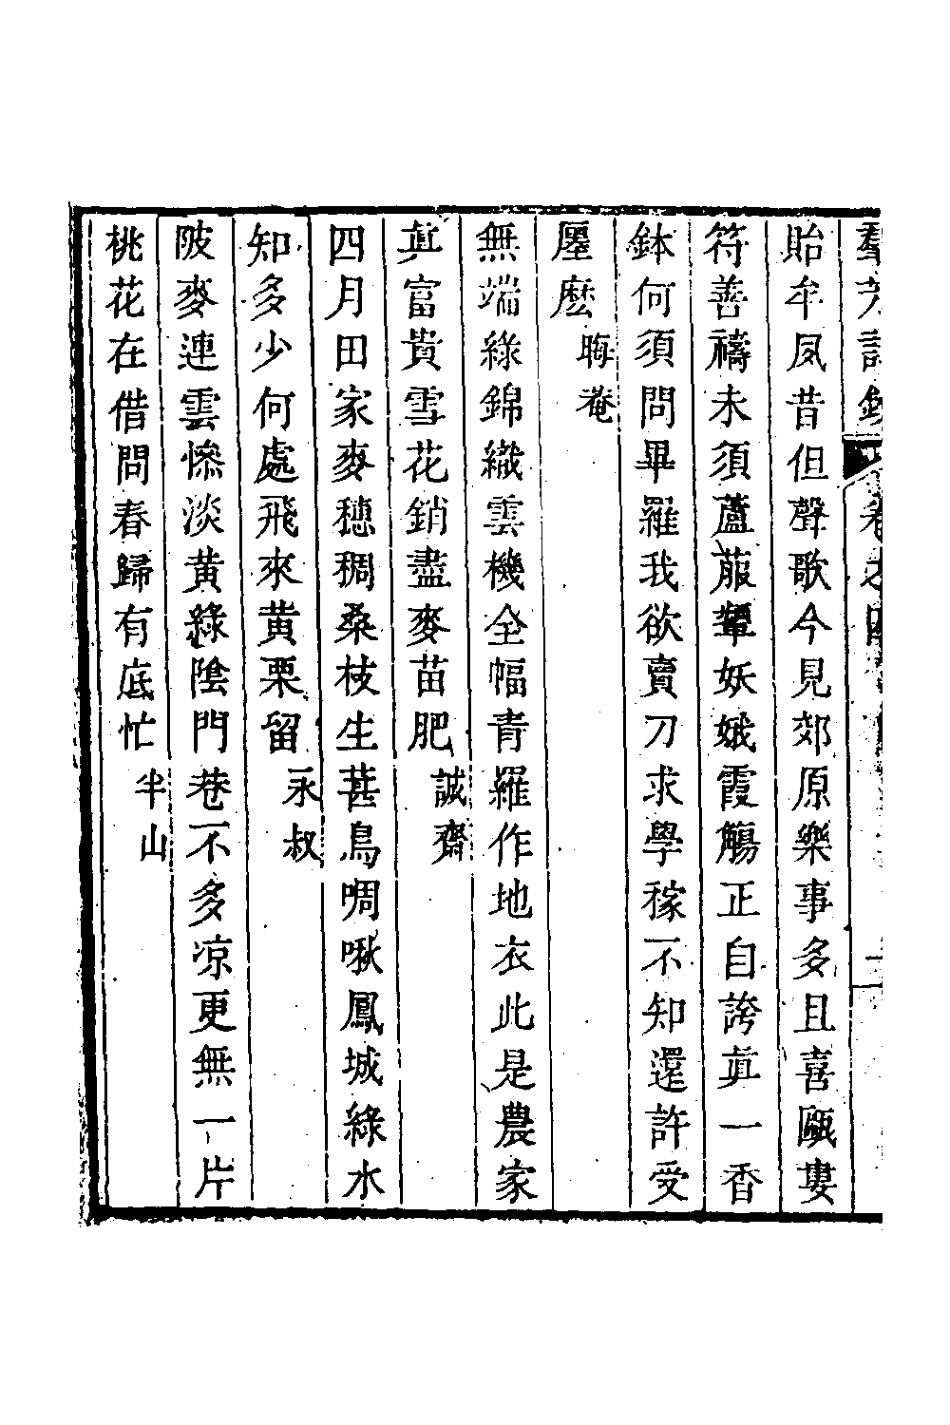 羣芳詩鈔 卷之四
貽牟夙昔但聲歌今見郊原樂事多且喜甌婁
符善禱未須蘆菔犟妖娥霞觴正自誇眞一香
鉢何須問畢羅我欲賣刀求學稼不知還許受
廛麽 晦菴
無端綠錦織雲機全幅青羅作地衣此是農家
眞富貴雪花銷盡麥苗肥 誠齋
四月田家麥穗稠桑枝生葚鳥啁啾鳳城綠水
知多少何處飛來黃栗留 永叔
陂麥連雲慘淡黃綠陰門巷不多凉更無一片
桃花在借問春歸有底忙 半山